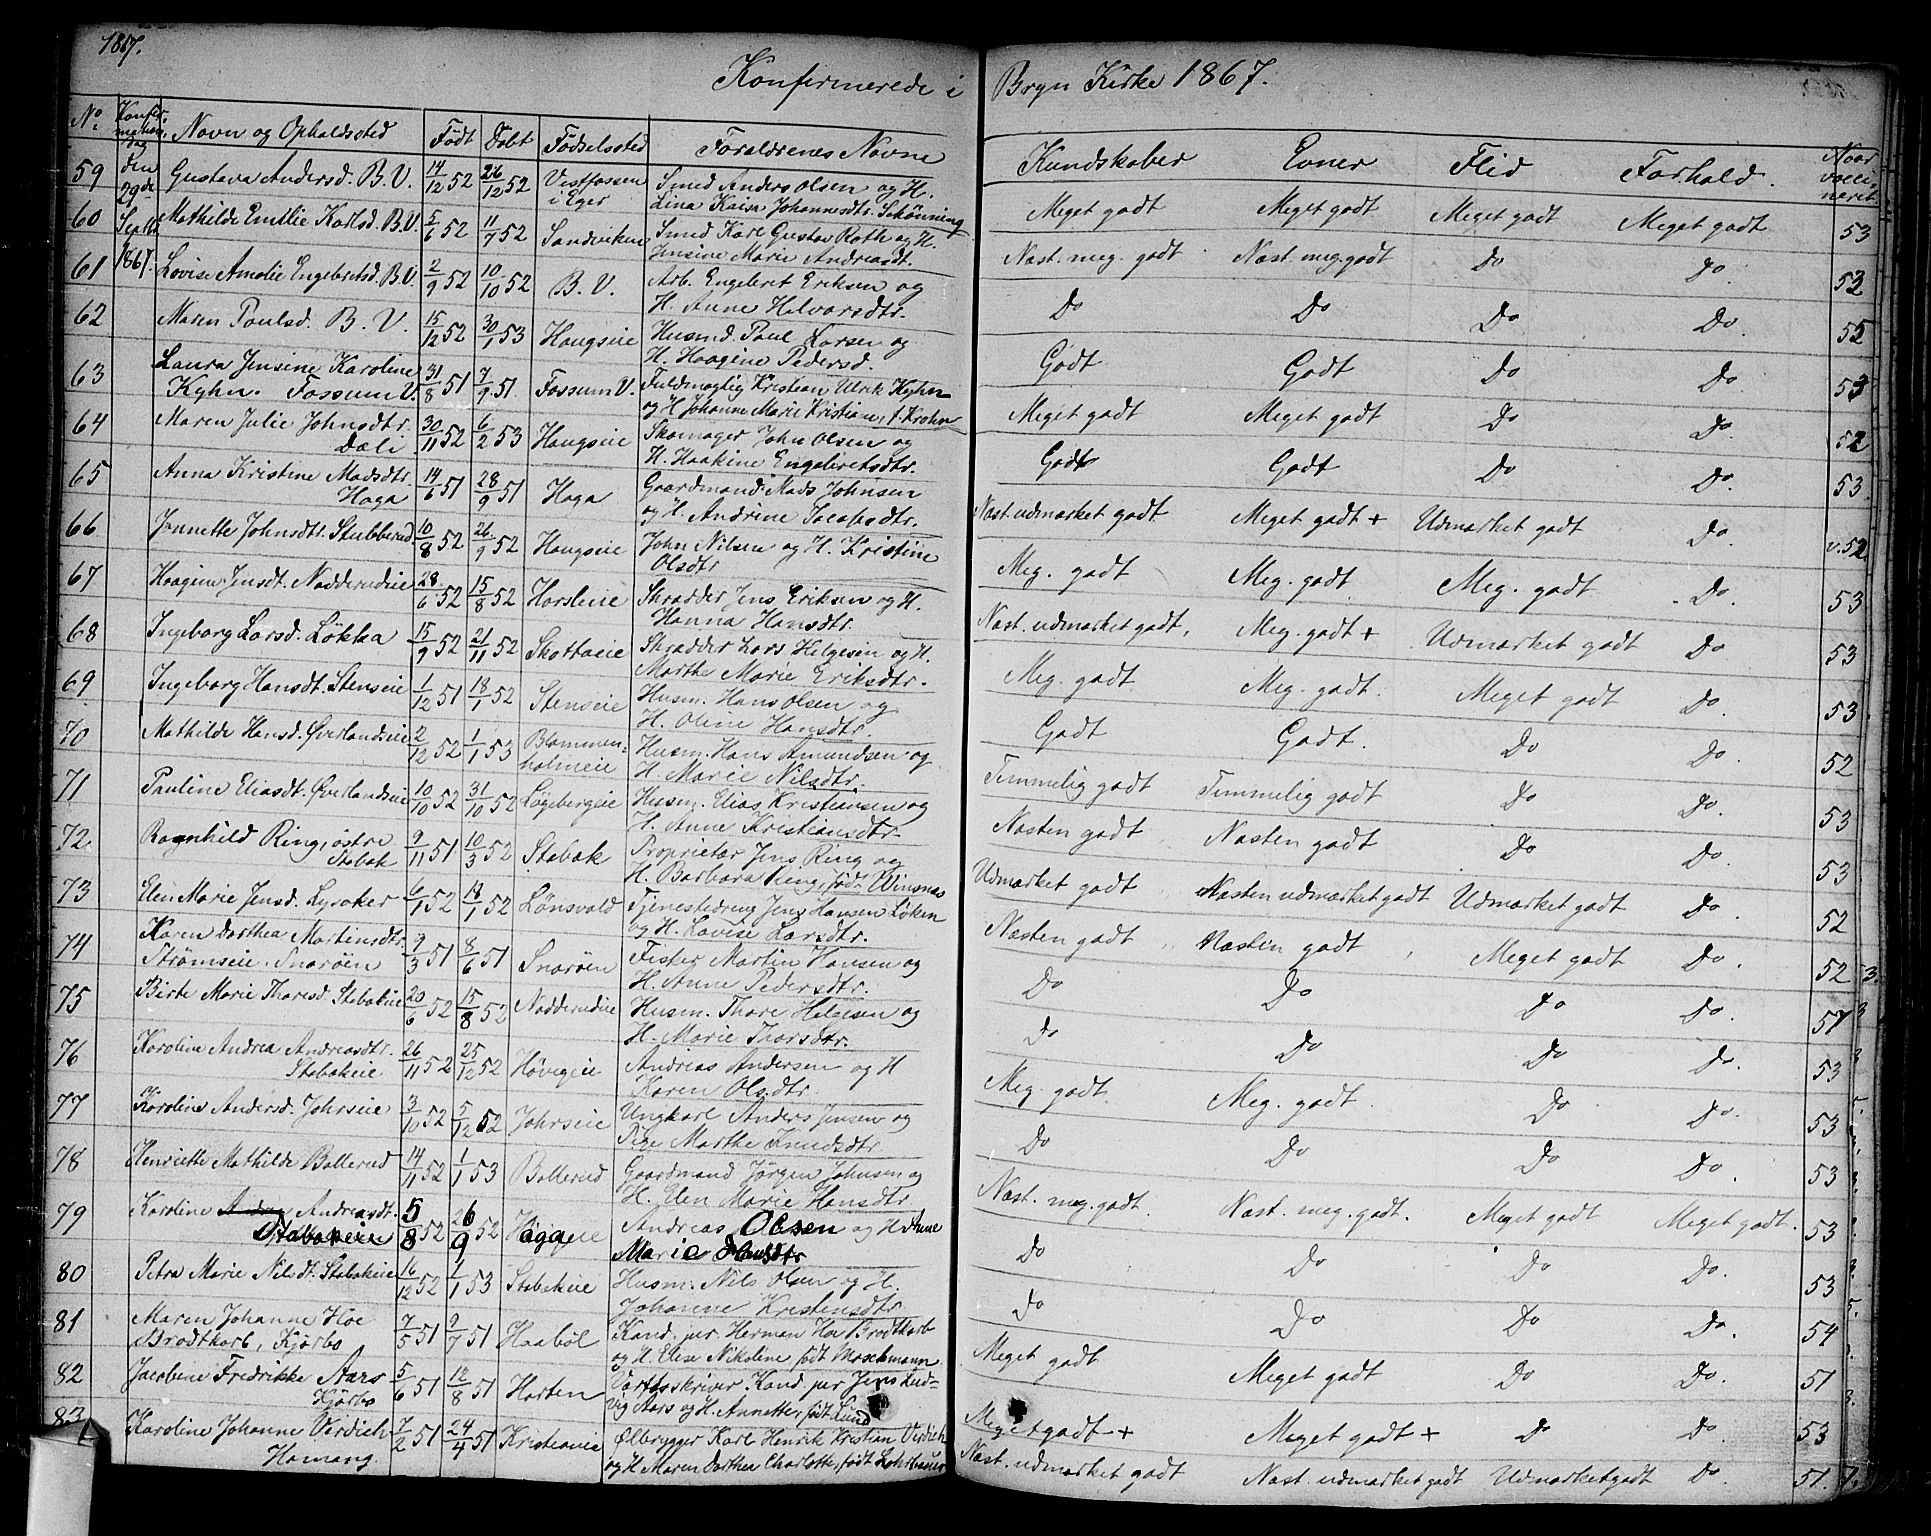 1867.
Konfirmerede i Bryn Kirke 1867.
No Konfirmations Dag Navn og Opholdssted Født Døbt Fødselssted Forældrenes Navne Kundskaber Evner Flid Forhold. Naar vaccineret
den 29de Septbr 1867.
59 Gustava Andersd. B.V. 14/12 52 26/12 52 Vestfossen i Eger Smed Anders Olsen og H. Lina Kaisa Johannesdtr. Schønning Meget godt Meget godt Meget godt Meget godt 53
60 Mathilde Emilie Karlsd. B.V. 5/6 52 11/7 52 Sandviken Smed Karl Gustav Roth og H. Jensine Marie Andreasdt. Næst. meg. godt Næst. meg. godt Do Do. 52
61 Lovise Amalie Engebretsd. B.V. 2/9 52 10/10 52 B.V. Arb. Engebret Eriksen og H. Anne Halvorsdtr. Do Do Do Do. 55
62 Maren Poulsd. B.V. 15/12 52 30/1 53 Haugseie Husmd. Paul Larsen og H. Haagine Pedersd. Godt Godt Do Do 53
63 Laura Jensine Karoline Kyhn. Fossum V. 31/8 51 7/9 51 Fossum V. Fuldmægtig Kristian Ulrik Kyhn og H. Johanne Marie Kristian, f. Krohn Meget godt Meget godt Do Do. 52
64 Maren Julie Johnsdtr. Dæli 30/11 52 6/2 53 Haugseie Skomager John Olsen og H. Haakine Engebretsdtr. Godt Godt Do Do. 53.
65 Anna Kristine Madsdtr. Haga 14/6 51 28/9 51 Haga Gaardmand Mads Johnsen og H. Andrine Jacobsdtr. Næst. udmærket godt Meget godt + Udmærket godt Do. v.52.
66 Jennette Johnsdtr. Stubberud. 10/8 52 26/9 52 Haugseie John Nilsen og H. Kristine Olsdtr Meg. godt Meg. godt Meg. godt Do. 53
67 Haagine Jensdt. Nadderudeie 28/6 52 15/8 52 Horsleie Skrædder Jens Eriksen og H. Hanna Hansdtr. Næst. udmærket godt, Meg. godt + Udmærket godt Do 53
68 Ingeborg Larsd. Løkka 15/9 52 21/11 52 Skottaeie Skrædder Lars Helgesen og H. Marthe Marie Eriksdtr. Meg. godt Meg. godt. Meget godt Do. 53.
69 Ingeborg Hansdt. Stenseie 1/12 51 18/1 52 Stenseie Husm. Hans Olsen og H. Oline Hansdtr. Godt Godt. Do Do. 52
70 Mathilde Hansd. Øverlandseie 2/12 52 1/1 53 Blommenholmeie Husm. Hans Amundsen og H. Marie Nilsdtr. Temmelig godt Temmelig godt Do Do. 53
71 Pauline Eliasdt. Øverlandseie 10/10 52 31/10 52 Løgebergeie Husm. Elias Kristiansen og H. Anne Kristiansdtr. Næsten godt Næsten godt Do Do. 53
72 Ragnhild Ring, østre Stabæk 9/11 51 10/3 52 Stabæk Proprietær Jens Ring og H. Barbara Ring, fød Winsnæs Udmærket godt Næsten udmærket godt Udmærket godt Do. 52
73 Elen Marie Jensd. Lysaker 6/1 52 18/1 52 Lønsvald Tjenestedreng Jens Hansen Løken og H. Lovise Larsdtr. Næsten godt Næsten godt Meget godt Do. 52
74 Karen Dorthea Martinsdtr. Strømseie. Snarøen 9/3 51 8/6 51 Snarøen Fisker Martin Hansen og H. Anne Pedersdtr. Do Do Do Do. 57
75 Birte Marie Thoresd. Stabækeie 20/6 52 15/8 52 Nadderudeie Husm. Thore Helgesen og H. Marie Thorsdtr. Do Do Do Do. 53
76 Karoline Andrea Andreasdtr. Stabækeie 26/11 52 25/12 52 Høvigeie Andreas Andersen og H Karen Olsdtr. Meg. godt Meg. godt Do Do. 53
77 Karoline Andersd. Johrseie 3/10 52 5/12 52 Johrseie Ungkarl Anders Jensen og Pige Marthe Knudsdtr. Do Do Do Do. 53
78 Henriette Mathilde Ballerud 14/11 52 1/1 53 Ballerud Gaardmand Jørgen Johnsen og H. Elen Marie Hansdtr Næst. meg. godt. Næst. meg. godt. Meget godt Meget godt. 53
79 Karoline Andreasdt. Stabækeie 5/8 52 26/9 52 Hagaeie Andreas Olsen og H Anne Marie Do Do Do Do. 53
80 Petra Marie Nilsdt. Stabækeie 16/12 52 1/1 53 Stabækeie Husm. Nils Olsen og H. Johanne Kristensdtr Do Do Do Do. 54
81 Maren Johanne Hoe Brodtkorb, Kjørbo 7/5 51 9/7 51 Haabøl Kand. jur. Herman Hoe Brodtkorb og H. Elise Nikoline, født Moschmann Meget godt Meget godt Do Do. 51
82 Jacobine Fredrikke Aars Kjørbo 5/6 51 12/8 51 Horten Værftsskriver. Kand. jur Jens Ludvig Aars og H. Annette, født Lund Meget godt + Meget godt + Do Do. 53
83 Karoline Johanne Verdich Hamang. 7/2 51 24/4 51 Kristiania Ølbrygger Karl Henrik Kristian Verdich og H. Maren Dorthea Charlotte, født Lohrbauer Næst. udmærket godt Næst. udmærket godt Udmærket godt Do. 51.